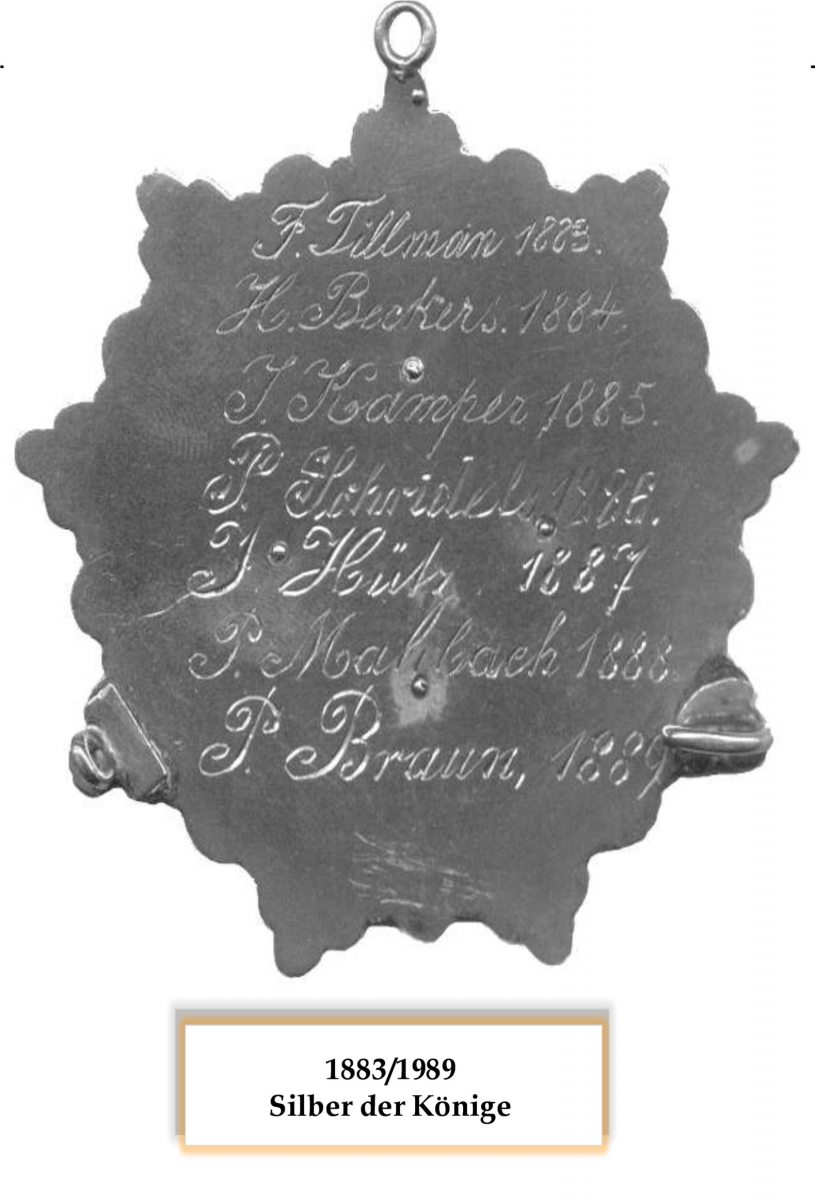 F. Tillman 1883.
H. Beckers. 1884.
J. Kamper 1885.
P. 1886.
J. Hütz. 1887
P. Mahlbach 1888.
P. Braun, 1889
1883/1989
Silber der Könige